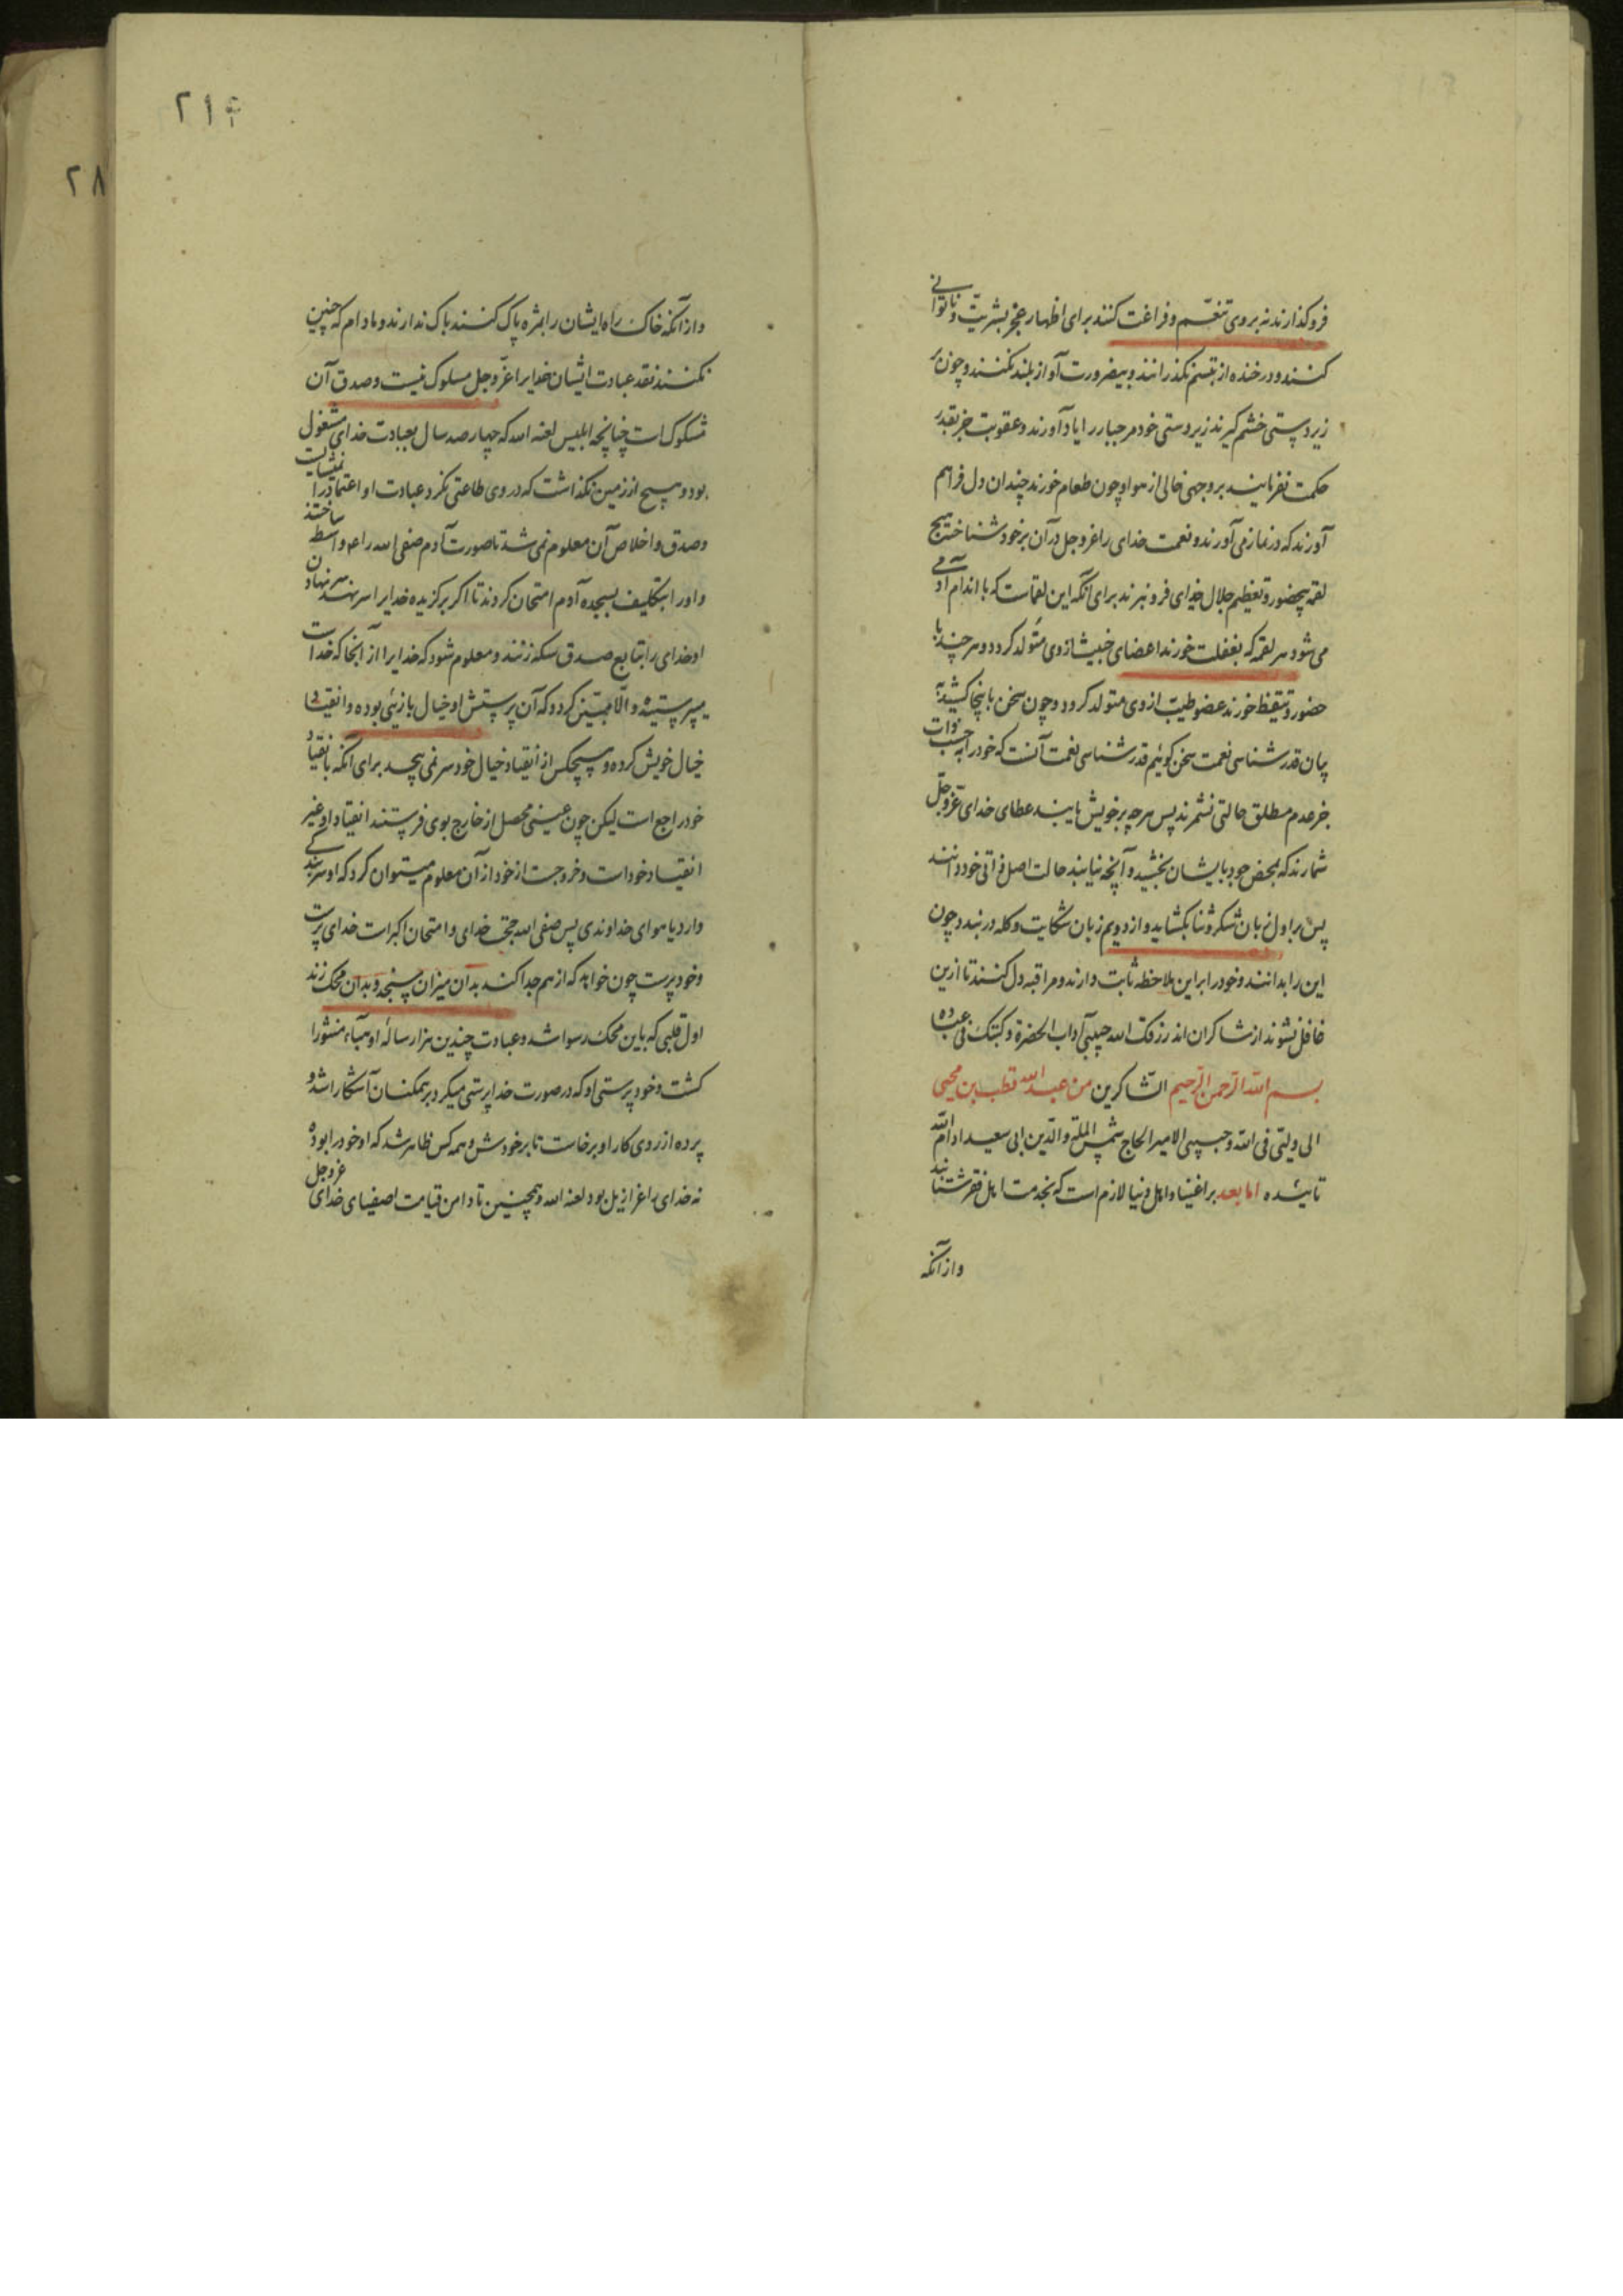 فروکذارند نه بروی تنعّم و فراغت کنند برای اظهار عجز بشریّت و ناتوانی
کنند و در خنده از تبسّم نکذرانند و بیضرورت آواز بلند نکنند و چون بر
زیردستی خشم کیرند زیردستی خود مر جبار را یاد آورند و عقوبت جز بقدر
حکمت نفرمایند بروجهی خالی از هوا و چون طعام خورند چندان دل فراهم
آورند که در نماز می آورند و نعمت خدای را عزوجل در آن بر خود شناخته هیچ
لقمه بیحضور و تعظیم جلال خدای فرو نبرند برای آنکه این لقماست که با اندام آدمی
می شود هر لقمه که بغفلت خورند اعضای خبیثه ازوی متولد کردد و هر چند با
حضور و تیقظ خورند عضو طیّب ازوی متولد کردد و چون سخن باینجا کشید
بیان قدرشناسی نعمت سخن کوئیم قدرشناسی نعمت آنست که خود را به حسب ذات
جز عدم مطلق حالتی نشمرند پس هرچه بر خویش یابند عطای خدای عزّوجلّ
شمارند که بمحض جود بایشان بخشیده و آنچه نیابند حالت اصل ذاتی خود دانند
پس بر اول زبان شکر و ثنا بکشاید و از دویم زبان شکایت و کله در بندد و چون
این را بدانند و خود را بر این ملاحظه ثابت دارند و مراقبه دل کنند تا ازین
غافل نشوند از شاکران اند رزقک الله حبیبی آداب الحضرة و کتبک فی عباده
الشّاکرین بسم الله الرّحمن الرّحیم من عبد الله قطب بن محیی
الی ولیّی فی الله و حبیبی الامیر الحاج شمس الملة و الدّین ابی سعید ادام الله
تائیده اما بعد بر اغنیا و اهل دنیا لازم است که بخدمت اهل فقر شتابند
واز آنکه
۲۱۴
۲۸
واز آنکه خاک راه ایشان را بمژه پاک کنند باک ندارند و مادام که چنین
نکنند نقد عبادت ایشان خدایرا عزّوجل مسکوک نیست و صدق آن
مشکوک است چنانچه ابلیس لعنه الله که چهارصد سال بعبادت خدای مشغول
بود و هیچ از زمین نکذاشت که در وی طاعتی نکرد عبادت او اعتماد را نمیشایست
و صدق و اخلاص آن معلوم نمی شد تا صورت آدم صفی الله را ع واسطه ساختند
و او را بتکلیف بسجده آدم امتحان کردند تا اکر برکزیده خدایرا سر نهد سر نهادن
او خدای را بتابع صدق سکه زنند و معلوم شود که خدایرا از آنجا که خداست
میپرستیده و الّا مبیّن کردد که آن پرستش او خیال بازئی بوده و انقیاد
خیال خویش کرده و هیچکس از انقیاد خیال خود سر نمی پیچد برای آنکه بانقیاد
خود راجع است لیکن چون عینی محصل از خارج بوی فرستند انقیاد او غیر
انقیاد خود است و خروجست از خود از آن معلوم میتوان کرد که او سر بندکی
دارد یا هوای خداوندی پس صفی الله حجة خدای و امتحان اکبر است خدای پرست
و خودپرست چون خواهد که از هم جدا کند بدان میزان بسنجد و بدان محک زند
اول قلبی که باین محک رسوا شد و عبادت چندین هزار ساله او هباء منثورا
کشت و خودپرستی او که در صورت خداپرستی میکرد بر همکنان آشکارا شد و
پرده از روی کار او برخاست تا بر خودش و همه کس ظاهر شد که او خود را بوده
نه خدای را عزازیل بود لعنه الله و همچنین تا دامن قیامت اصفیای خدای عزوجل